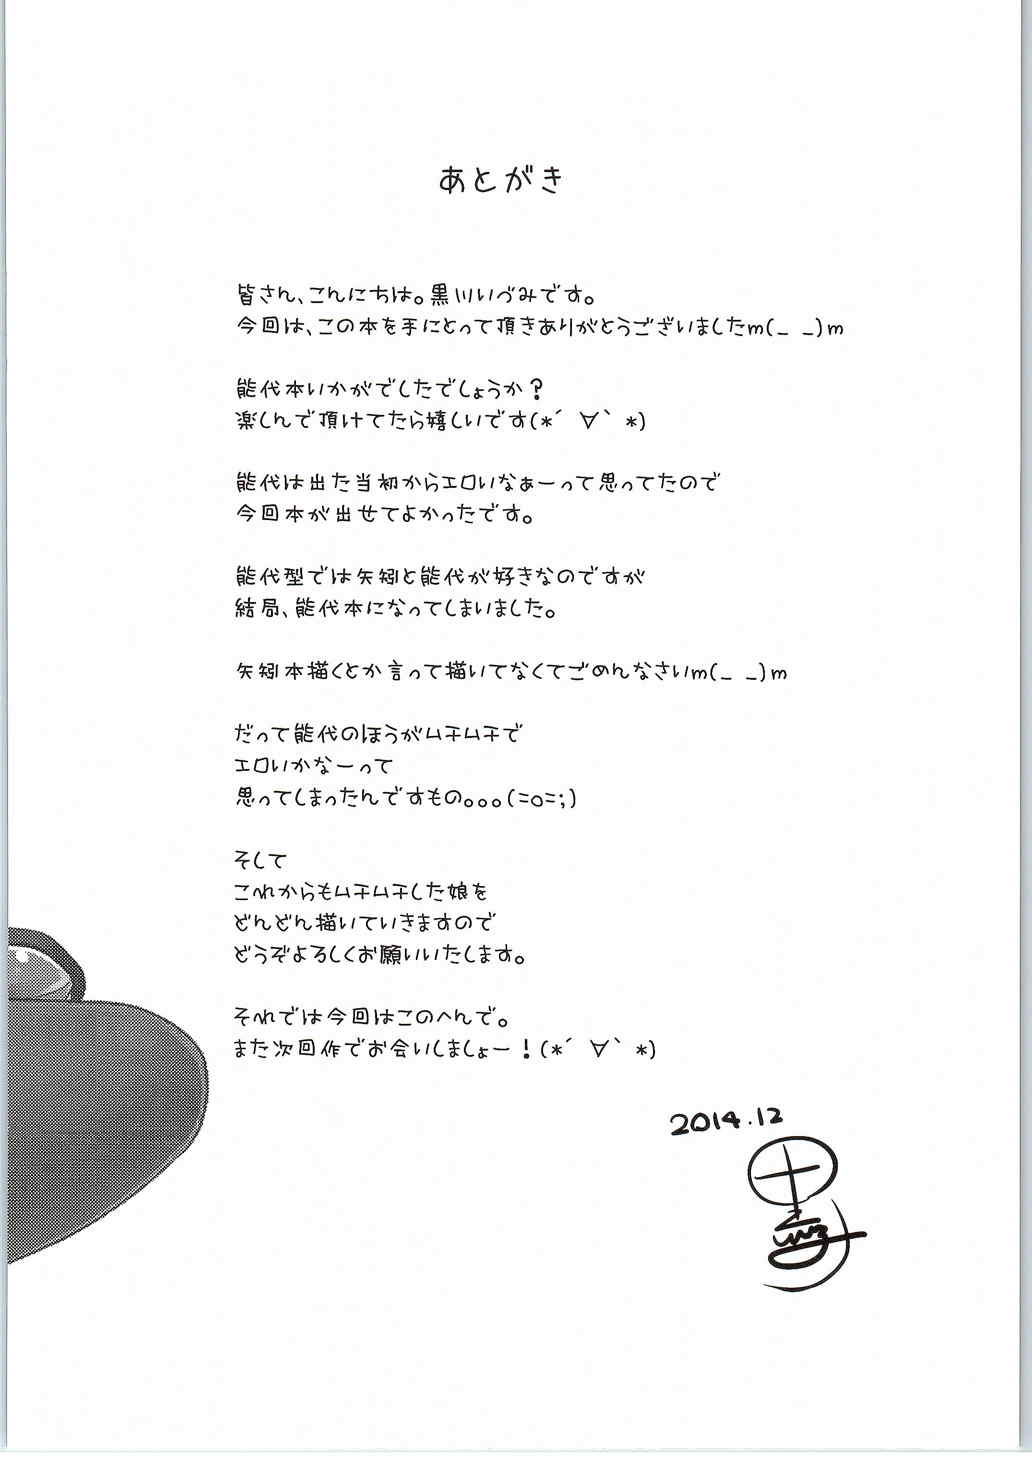 あとがき
皆さん、こんにちは。黒川いづみです。
今回は、この本を手にとって頂きありがとうございましたm(_ _)m
能代本いかがでしたでしょうか？
楽しんで頂けてたら嬉しいです(*´ ∀｀ *)
能代は出た当初からエロいなぁーって思ってたので
今回本が出せてよかったです。
能代型では矢矧と能代が好きなのですが
結局、能代本になってしまいました。
矢矧本描くとか言って描いてなくてごめんなさいm(_ _)m
だって能代のほうがムチムチで
エロいかなーって
思ってしまったんですもの。。。(=o=;)
そして
これからもムチムチした娘を
どんどん描いていきますので
どうぞよろしくお願いいたします。
それでは今回はこのへんで。
また次回作でお会いしましょー！(*´ ∀｀ *)
2014.12